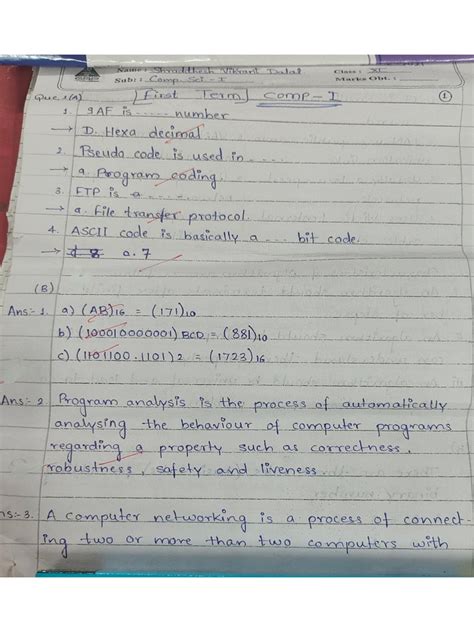 Name: Shraddhesh Vikrant Dalal Class: XI
Sub: Comp. Sci - I Marks Obt.:
Que 1(A) First Term Comp - I 1
1. 9AF is ..... number
→ D. Hexa decimal
2. Pseudo code is used in ....
→ a. Program coding
3. FTP is a .....
→ a. file transfer protocol.
4. ASCII code is basically a ... bit code.
→ a. 7
(B)
Ans:- 1. a) (AB)16 = (171)10
b) (100010000001) BCD = (881)10
c) (1101100.1101)2 = (1723)16
Ans:- 2 Program analysis is the process of automatically
analysing the behaviour of computer programs
regarding a property such as correctness,
robustness, safety and liveness.
ns:- 3. A computer networking is a process of connect
ing two or more than two computers with